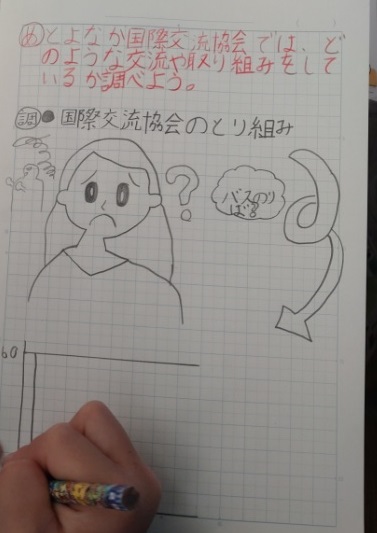 め とよなか国際交流協会では、ど
のような交流や取り組みをして
いるか調べよう。
調 ●国際交流協会のとり組み
?
バスのり
ば?
60